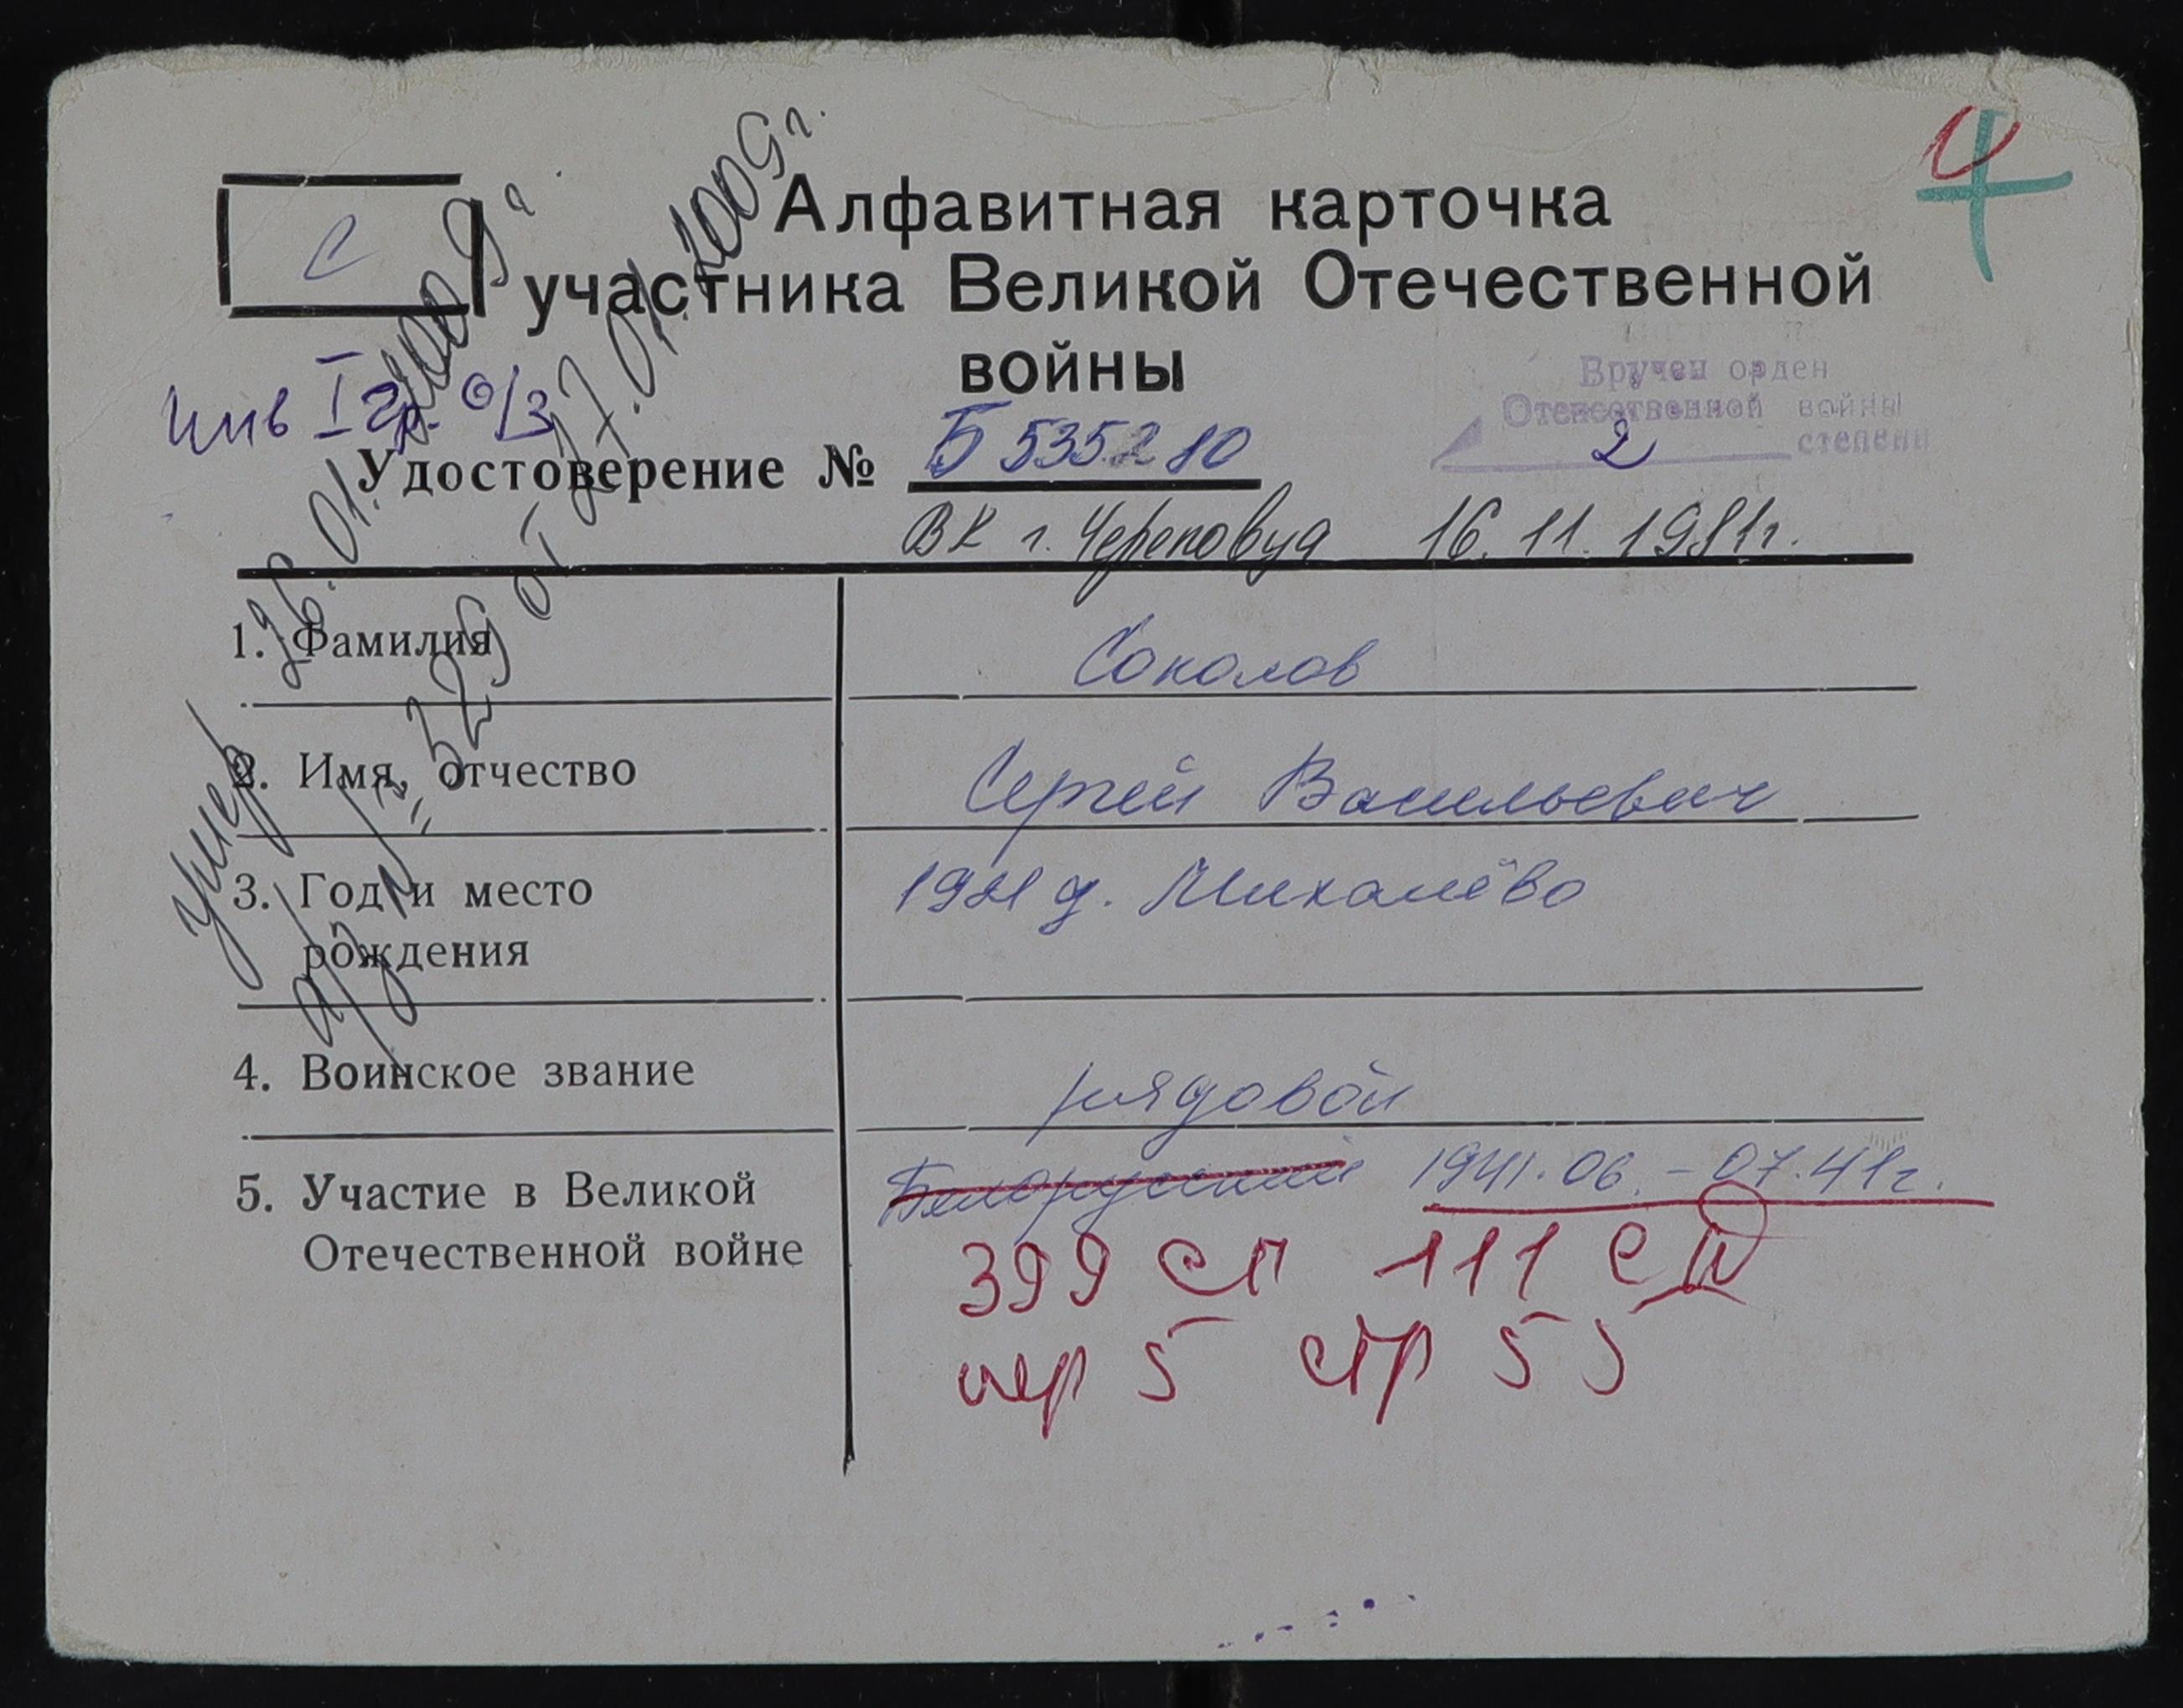 С
Алфавитная карточка
участника Великой Отечественной
войны
инв I гр. о/з
Вручен орден
Отечественной войны
2 степени
Удостоверение № Б 535280
ВК г. Череповца 16.11.1981г.
умер 26.01.2009г.
а/з № 329 от 27.01.2009г.
1. Фамилия Соколов
2. Имя, отчество Сергей Васильевич
3. Год и место
рождения
1921 д. Михалёво
4. Воинское звание рядовой
5. Участие в Великой
Отечественной войне
Белорусский 1941.06. - 07.41г.
399 сп 111 сд
пер 5 стр 55